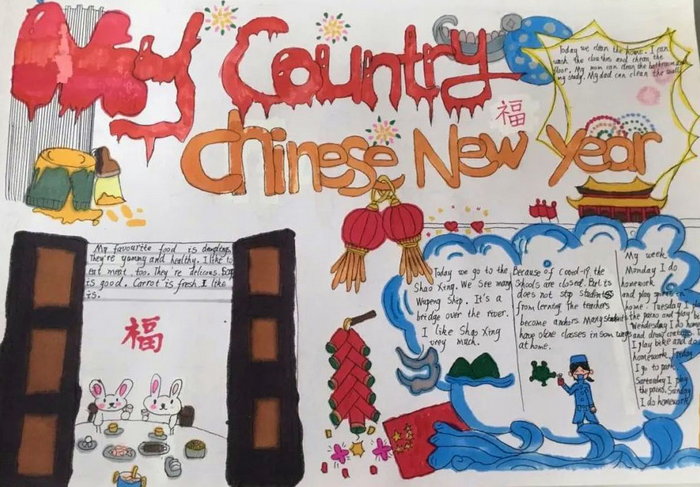 My Country
福
Chinese New Year
Today we clean the home. I can
wash the cloths and chean the
floor. My mum can clean the bathroom and
my study. My dad can clean the
My favourite food is dumplings
They're yummy and healthy. I like to
eat meat, too. They're delicious.
is good. Carrot is fresh. I like
is.
福
Today we go to the
Shao Xing. We see many
Wupeng Ship. It's a
bridge over the river.
I like Shao Xing
very much.
Because of covid-19 the
schools are closed. But is
does not stop students
from lerning the teachers
become anchors. Many students
have oline classes in som ways
at home.
My week
Monday I do
homework
and play sports in
home. Tuesday I
the piano and play
Wendesday I do
and draw
I play bike and do
homework.
I go to park
Saterday I play
the piano. Sunday
I do homework